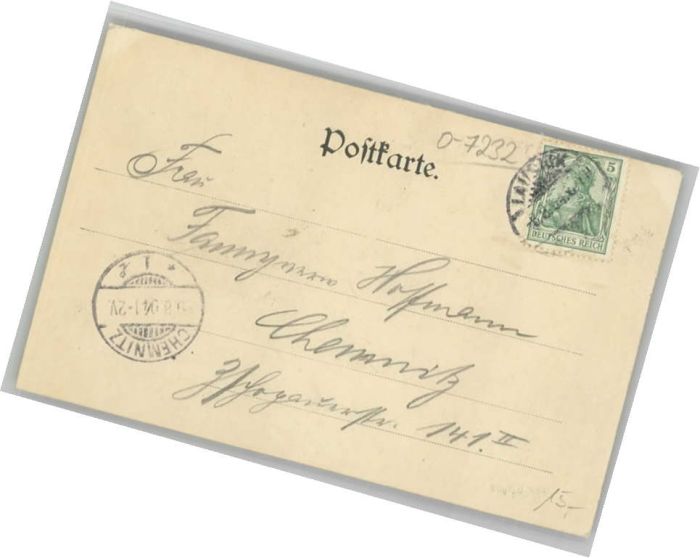 Postkarte.
0-7232
5
DEUTSCHES REICH
LAUSIGK
Frau
Hoffmann
Chemnitz
Zschopauerstr. 141. II
CHEMNITZ
8.04.1-2V.
* 1 *
15,-